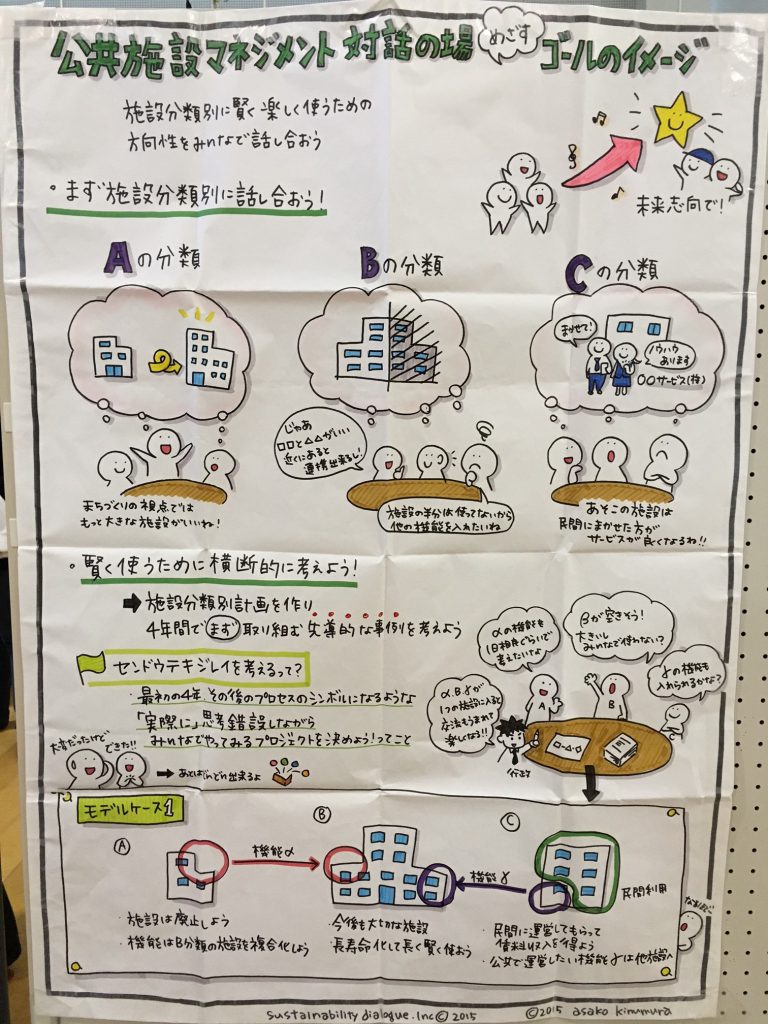 公共施設マネジメント 対話の場 めざす ゴールのイメージ
施設分類別に賢く楽しく使うための
方向性をみんなで話し合おう
未来志向で!
・まず施設分類別に話し合おう!
Aの分類
Bの分類
Cの分類
まかせて!
ノウハウ
あります
〇〇サービス(株)
じゃあ
□□と△△がいい
近くにあると
連携出来るし!
まちづくりの視点では
もっと大きな施設がいいね!
施設の半分は使ってないから
他の機能を入れたいね
あそこの施設は
民間にまかせた方が
サービスが良くなるね!!
・賢く使うために横断的に考えよう!
➡施設分類別計画を作り
4年間でまず取り組む先導的な事例を考えよう
センドウテキジレイを考えるって?
・最初の4年、その後のプロセスのシンボルになるような
「実際に」思考錯誤しながら
みんなでやってみるプロジェクトを決めよう!ってこと
大変だったけど
できた!!
➡あとはどんどん出来るよ
αの機能も
1日相席ぐらいで
考えたいよ
βが空きそう!
大きいし
みんなで使わない?
γの機能も
入れられるかな?
α.β.γが
1つの施設に入ると
交流もうまれて
楽しくなる!!
A
B
C
行政
モデルケース1
Ⓐ
Ⓑ
Ⓒ
機能α
機能γ
民間利用
・施設は廃止しよう
・機能はB分類の施設を複合化しよう
・今後も大切な施設
・長寿命化して長く賢く使おう
・民間に運営してもらって
賃料収入を得よう
・公共で運営したい機能γは他施設へ
なるほど
sustainability dialogue.Inc©2015
©2015 asako kimimura